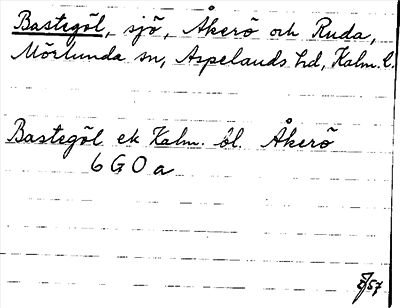 Bastegöl, sjö, Åkerö och Ruda,
Mörlunda sn, Aspelands hd, Kalm. l.
Bastegöl ek Kalm. bl. Åkerö
6 G 0 a